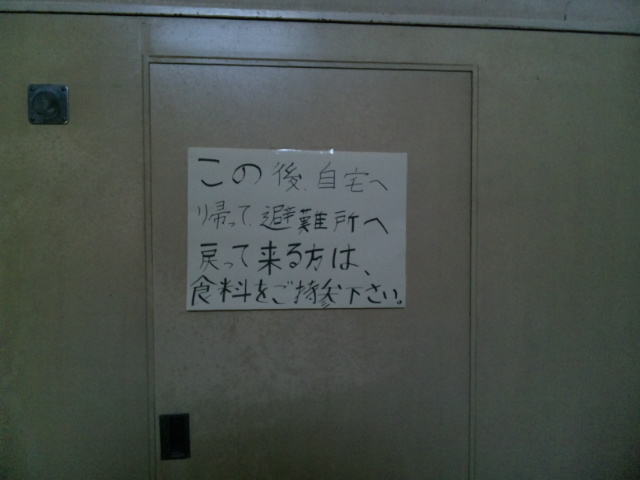 この後、自宅へ
帰って、避難所へ
戻って来る方は、
食料をご持参下さい。